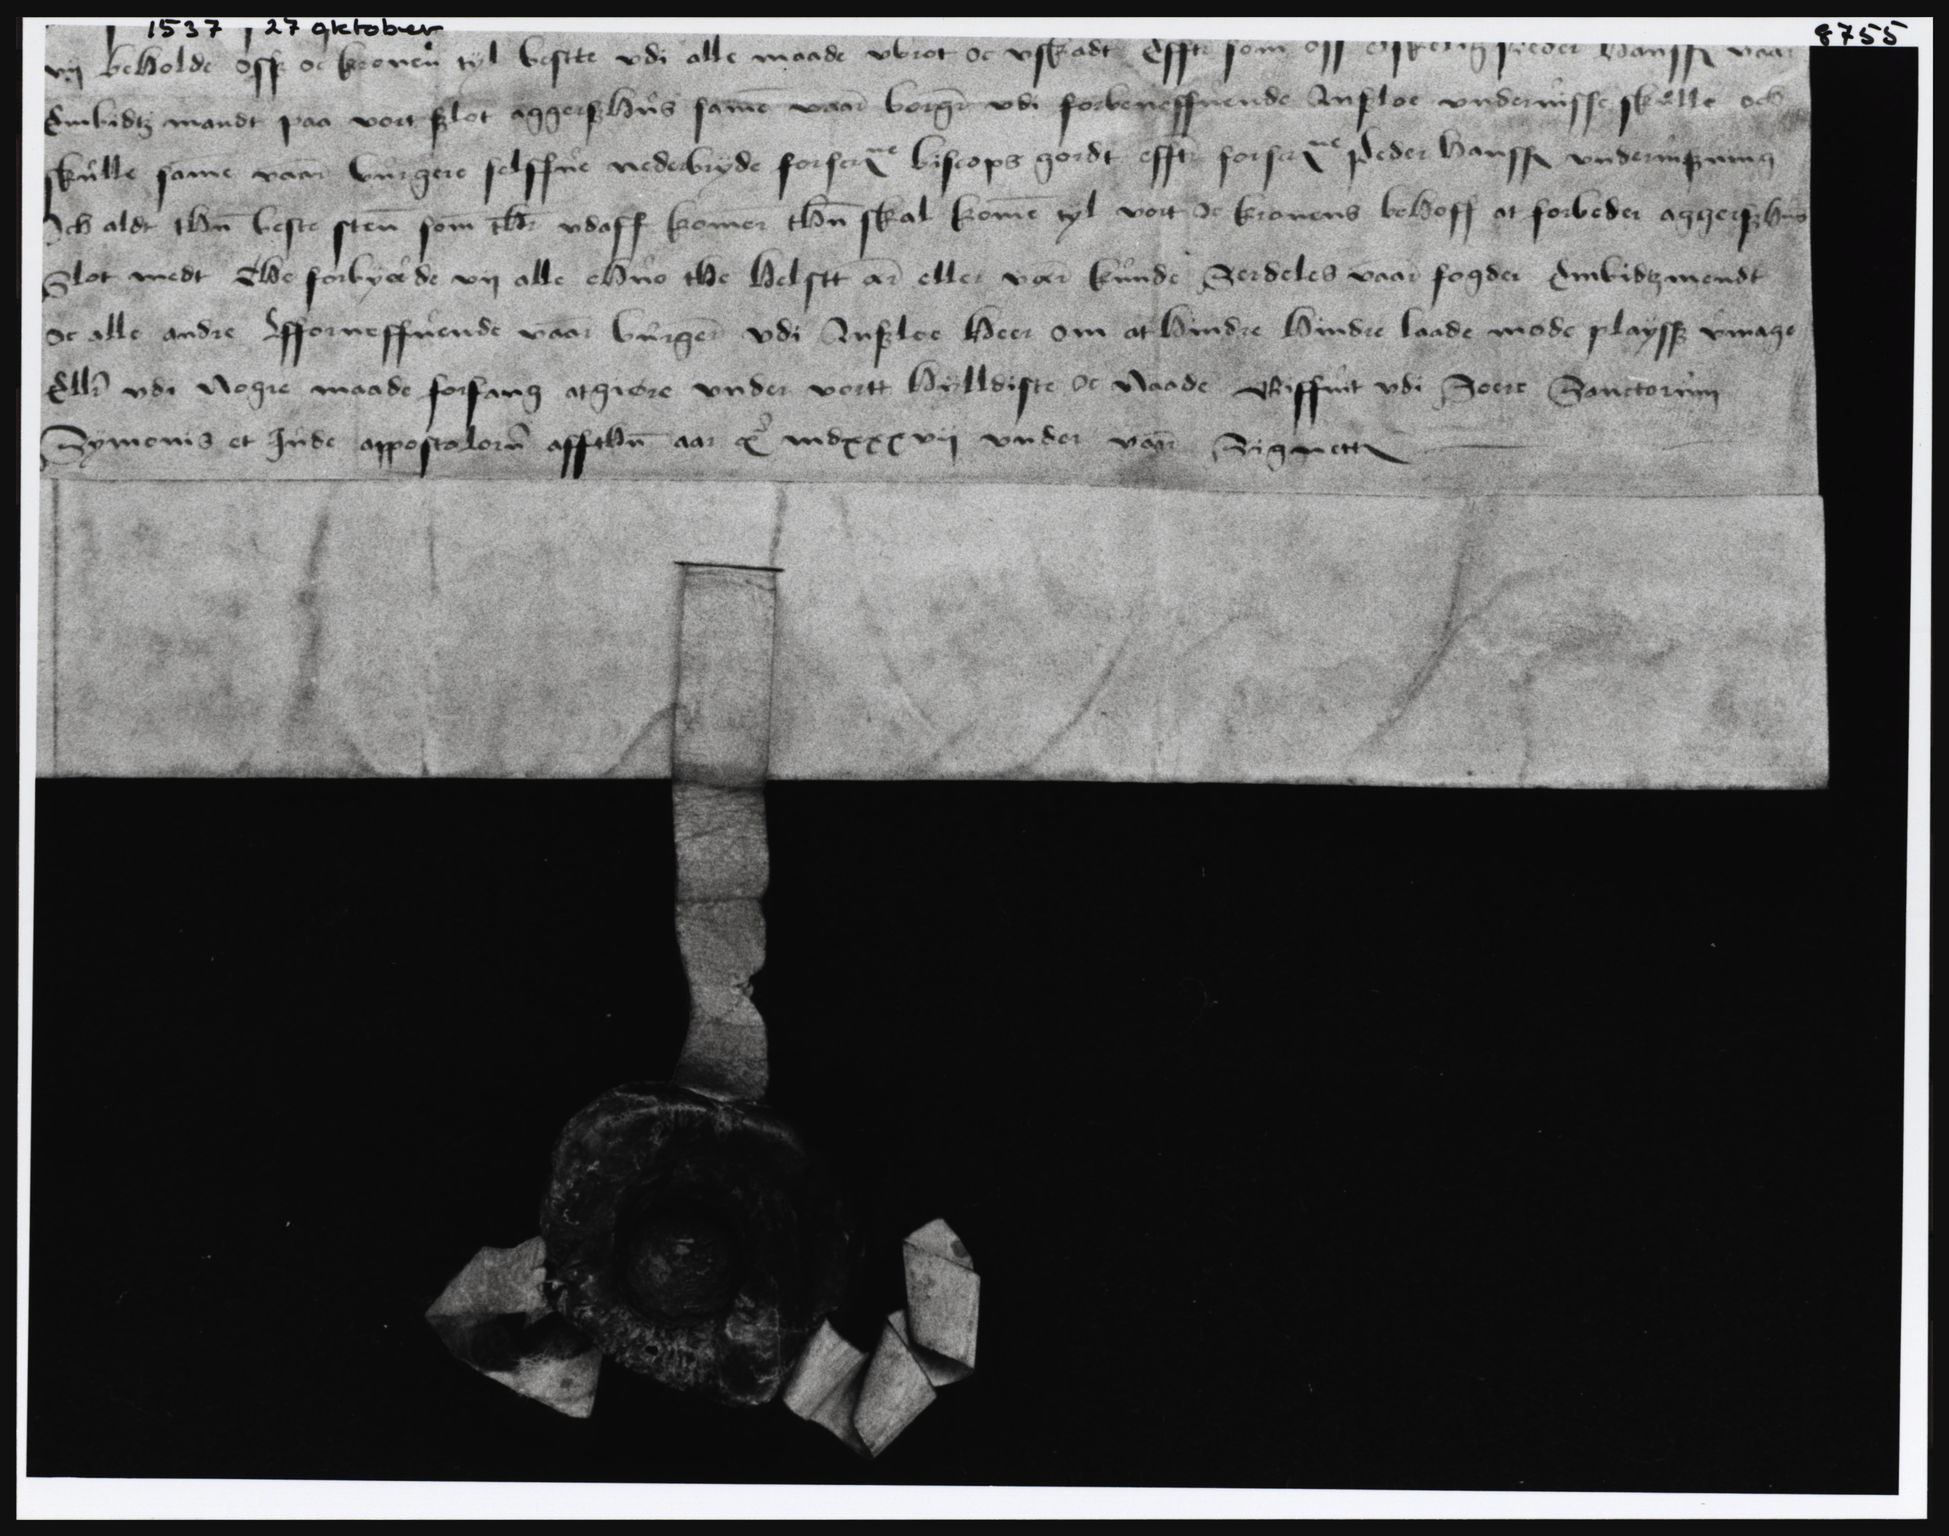 1537, 27 oktober
8755
vij beholde osß oc kronen tyl bestte vdi alle maade vbrot oc vskadt Efftr som oss elskelig peder Hanssn vaar
Embidtz mandt paa vort ßlot aggerßhus samē vaar borgr̄ vdi forbeneffnende Anßloe vnderuisse skulle och
skulle samē vaar burgere selffue nederbryde forscrne biscops gordt efftr̄ forscrne peder hanssn vnderuißning
Och aldt thn̄ beste stēn som thr̄ vdaff komer thn̄ skal komē tyl vort oc kronens behoff at forbeder aggerßhus
Slot medt The forbyde vij alle ehuo the helstt ær eller vær kunde Serdeles vaar fogder Embidtzmendt
oc alle andre Efforneffnende vaar burger vdi Anßloe Heer om at hindre hindre laade mode playsß vmage
Ellr̄ vdi Nogre maade forfang atgiøre vnder vortt Hylldiste oc Naade Giffuit vdi Soere Sanctorum
Symonis et Jude appostolorū affthn̄ aar &c mdxxxvij vnder vaar Signett